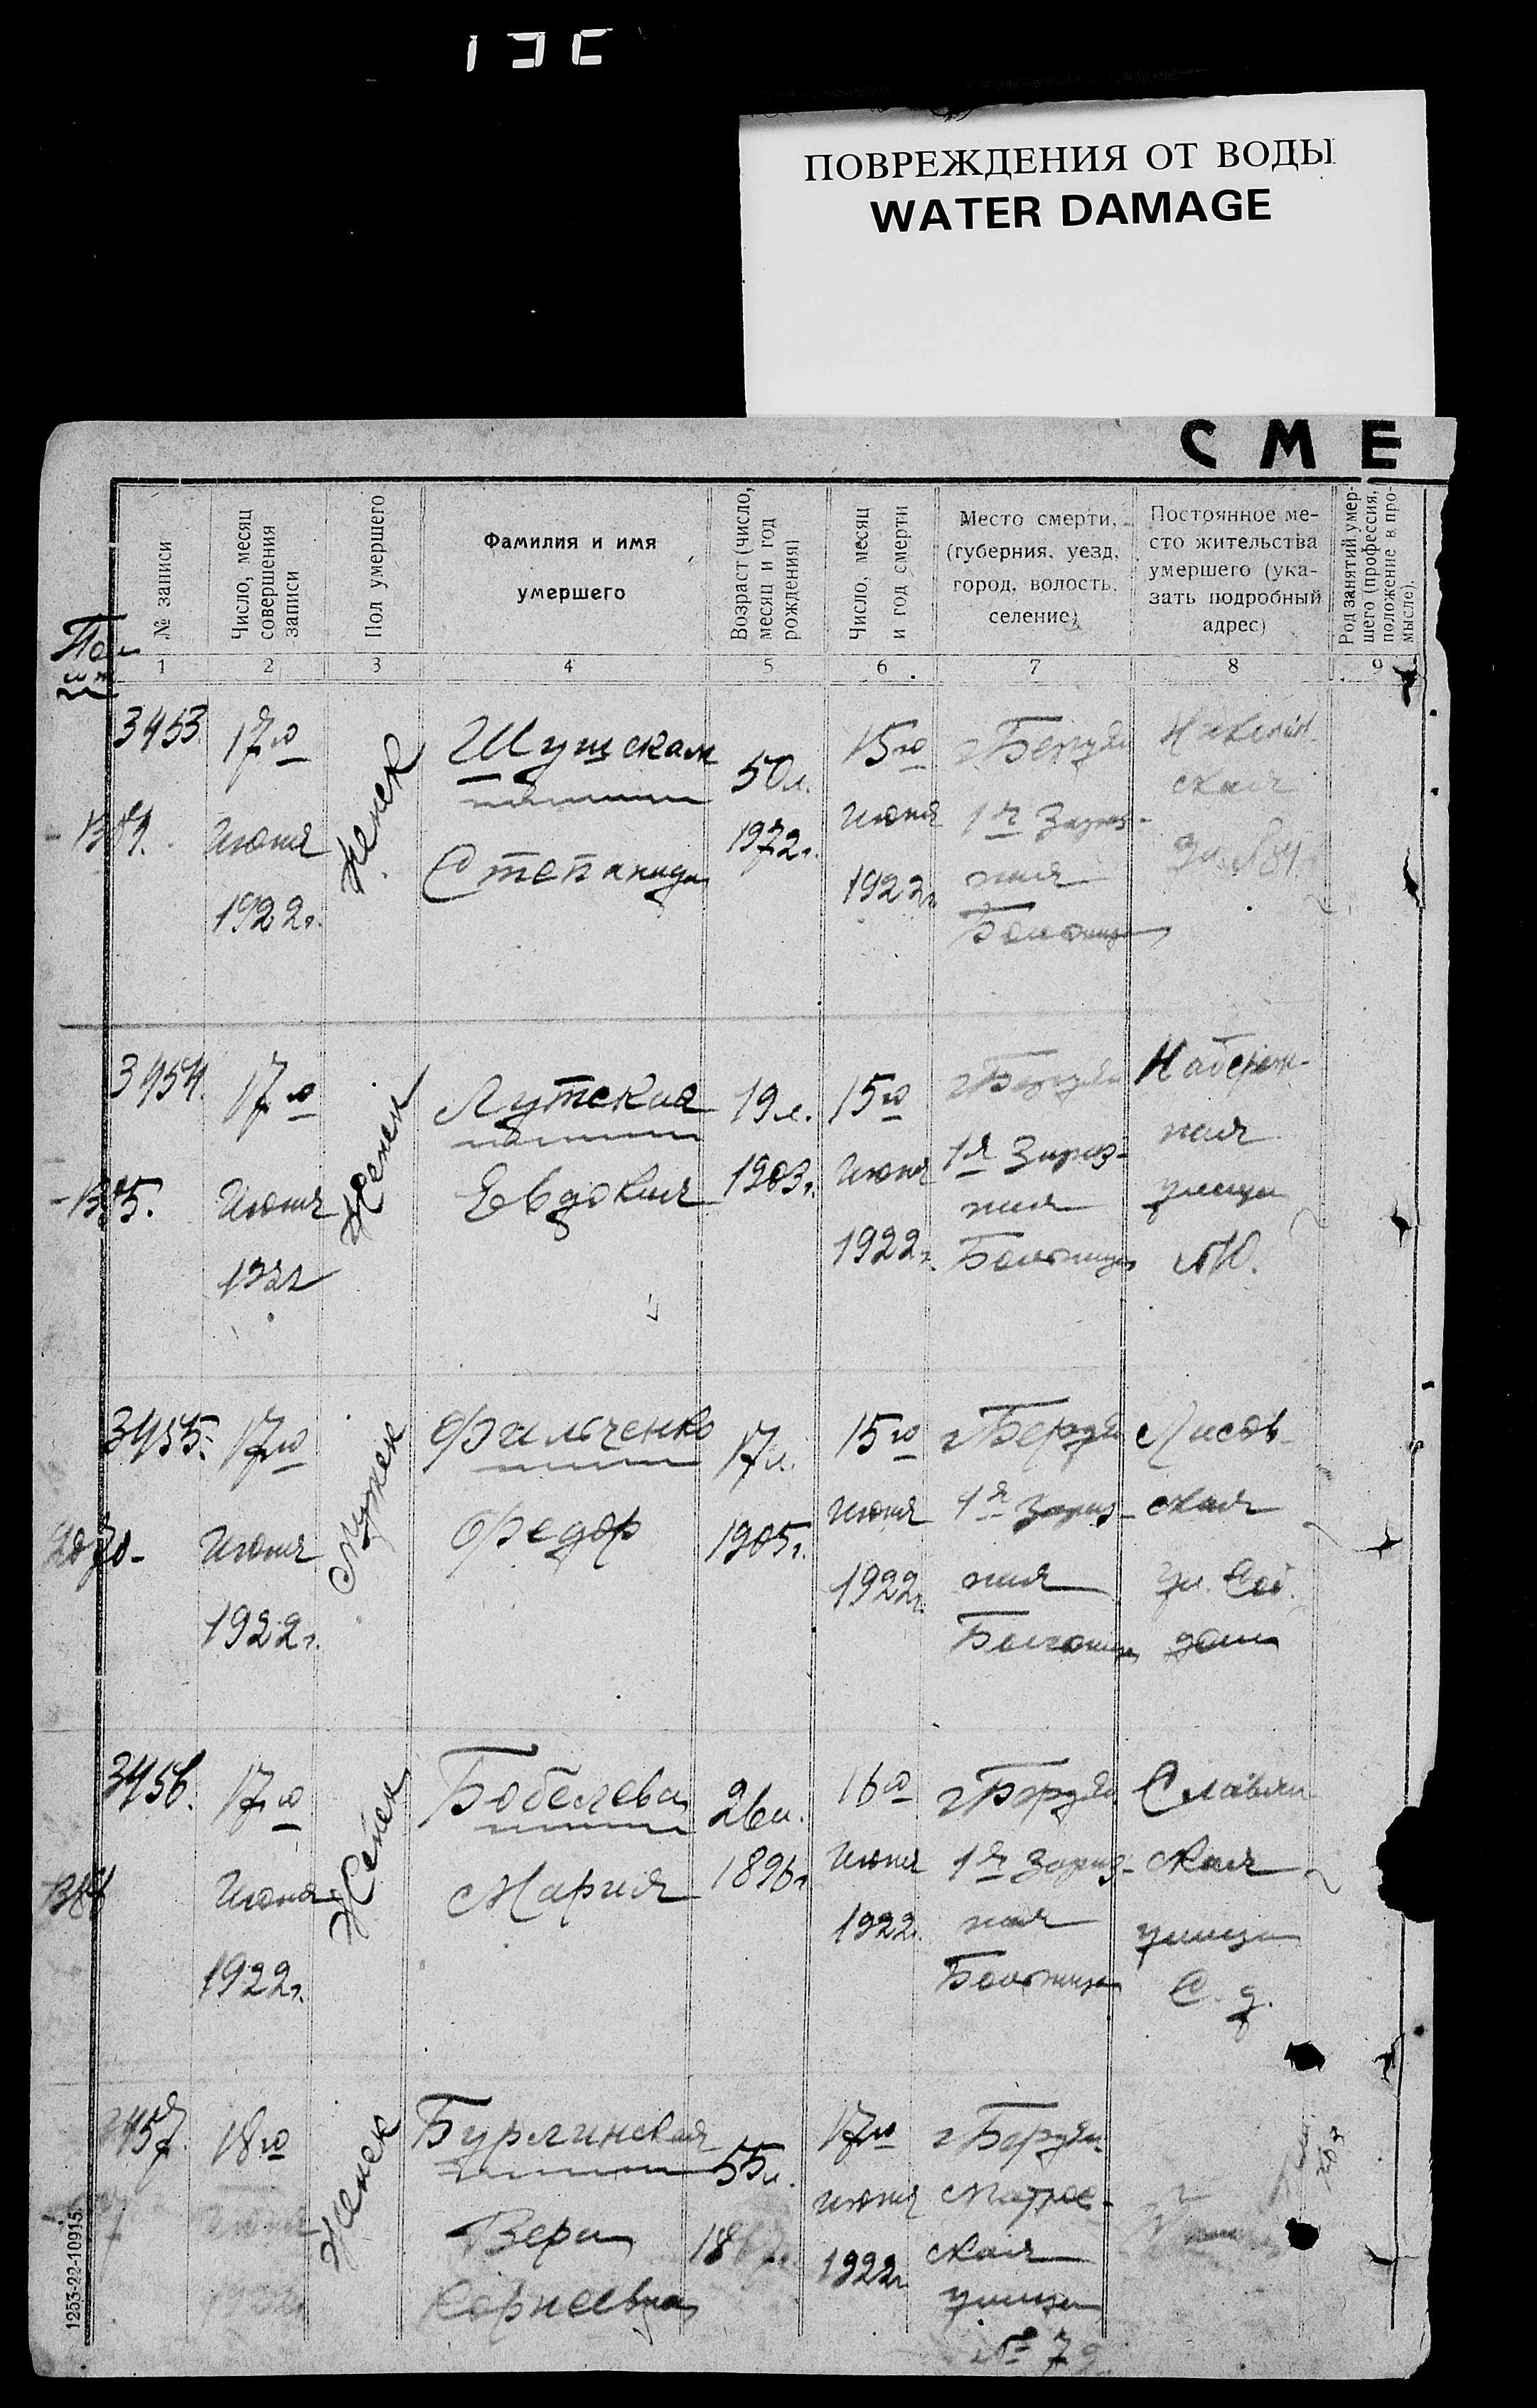 ПОВРЕЖДЕНИЯ ОТ ВОДЫ
WATER DAMAGE
СМЕ
№ записи
Число, месяц
совершения
записи
Пол умершего
Фамилия и имя
умершего
Возраст (число,
месяц и год
рождения)
Число, месяц
и год смерти
Место смерти,
(губерния, уезд,
город, волость,
селение)
Постоянное ме-
сто жительства
умершего (ука-
зать подробный
адрес)
Род занятий умер-
шего (профессия,
положение в про-
мысле).
1 2 3 4 5 6 7 8 9
3453.
17го
Июня
1922г.
Женск
Степанида
50л.
1972г.
15го
Июня
1922г.
1я Зараз-
ная
Больница
ская
3454.
17го
Июня
1922
Женск
Лутская
Евдокия
19л.
1903г.
15го
Июня
1922г.
1я Зараз-
ная
Больница
Набереж-
ная
улица
№10.
3455.
17го
Июня
1922г.
Мужск
Фальченко
Федор
17л.
1905г.
15го
Июня
1922г.
г Бердян
1я Зараз-
ная
Больница
Лисов-
ская
ул. Соб.
дом
3456.
17го
Июня
1922г.
Женск
Бобелева
Мария
26л.
1896г
16го
Июня
1922г.
г Бердян
1я Зараз-
ная
Больница
Славян
ская
улица
С. д.
3457.
18го
Женск
Бурлинская
Вера
Корнеевна
55л.
17го
Июня
1922г
г Бердян
Матрос-
ская
улица
№ 72
1253-22-10915.